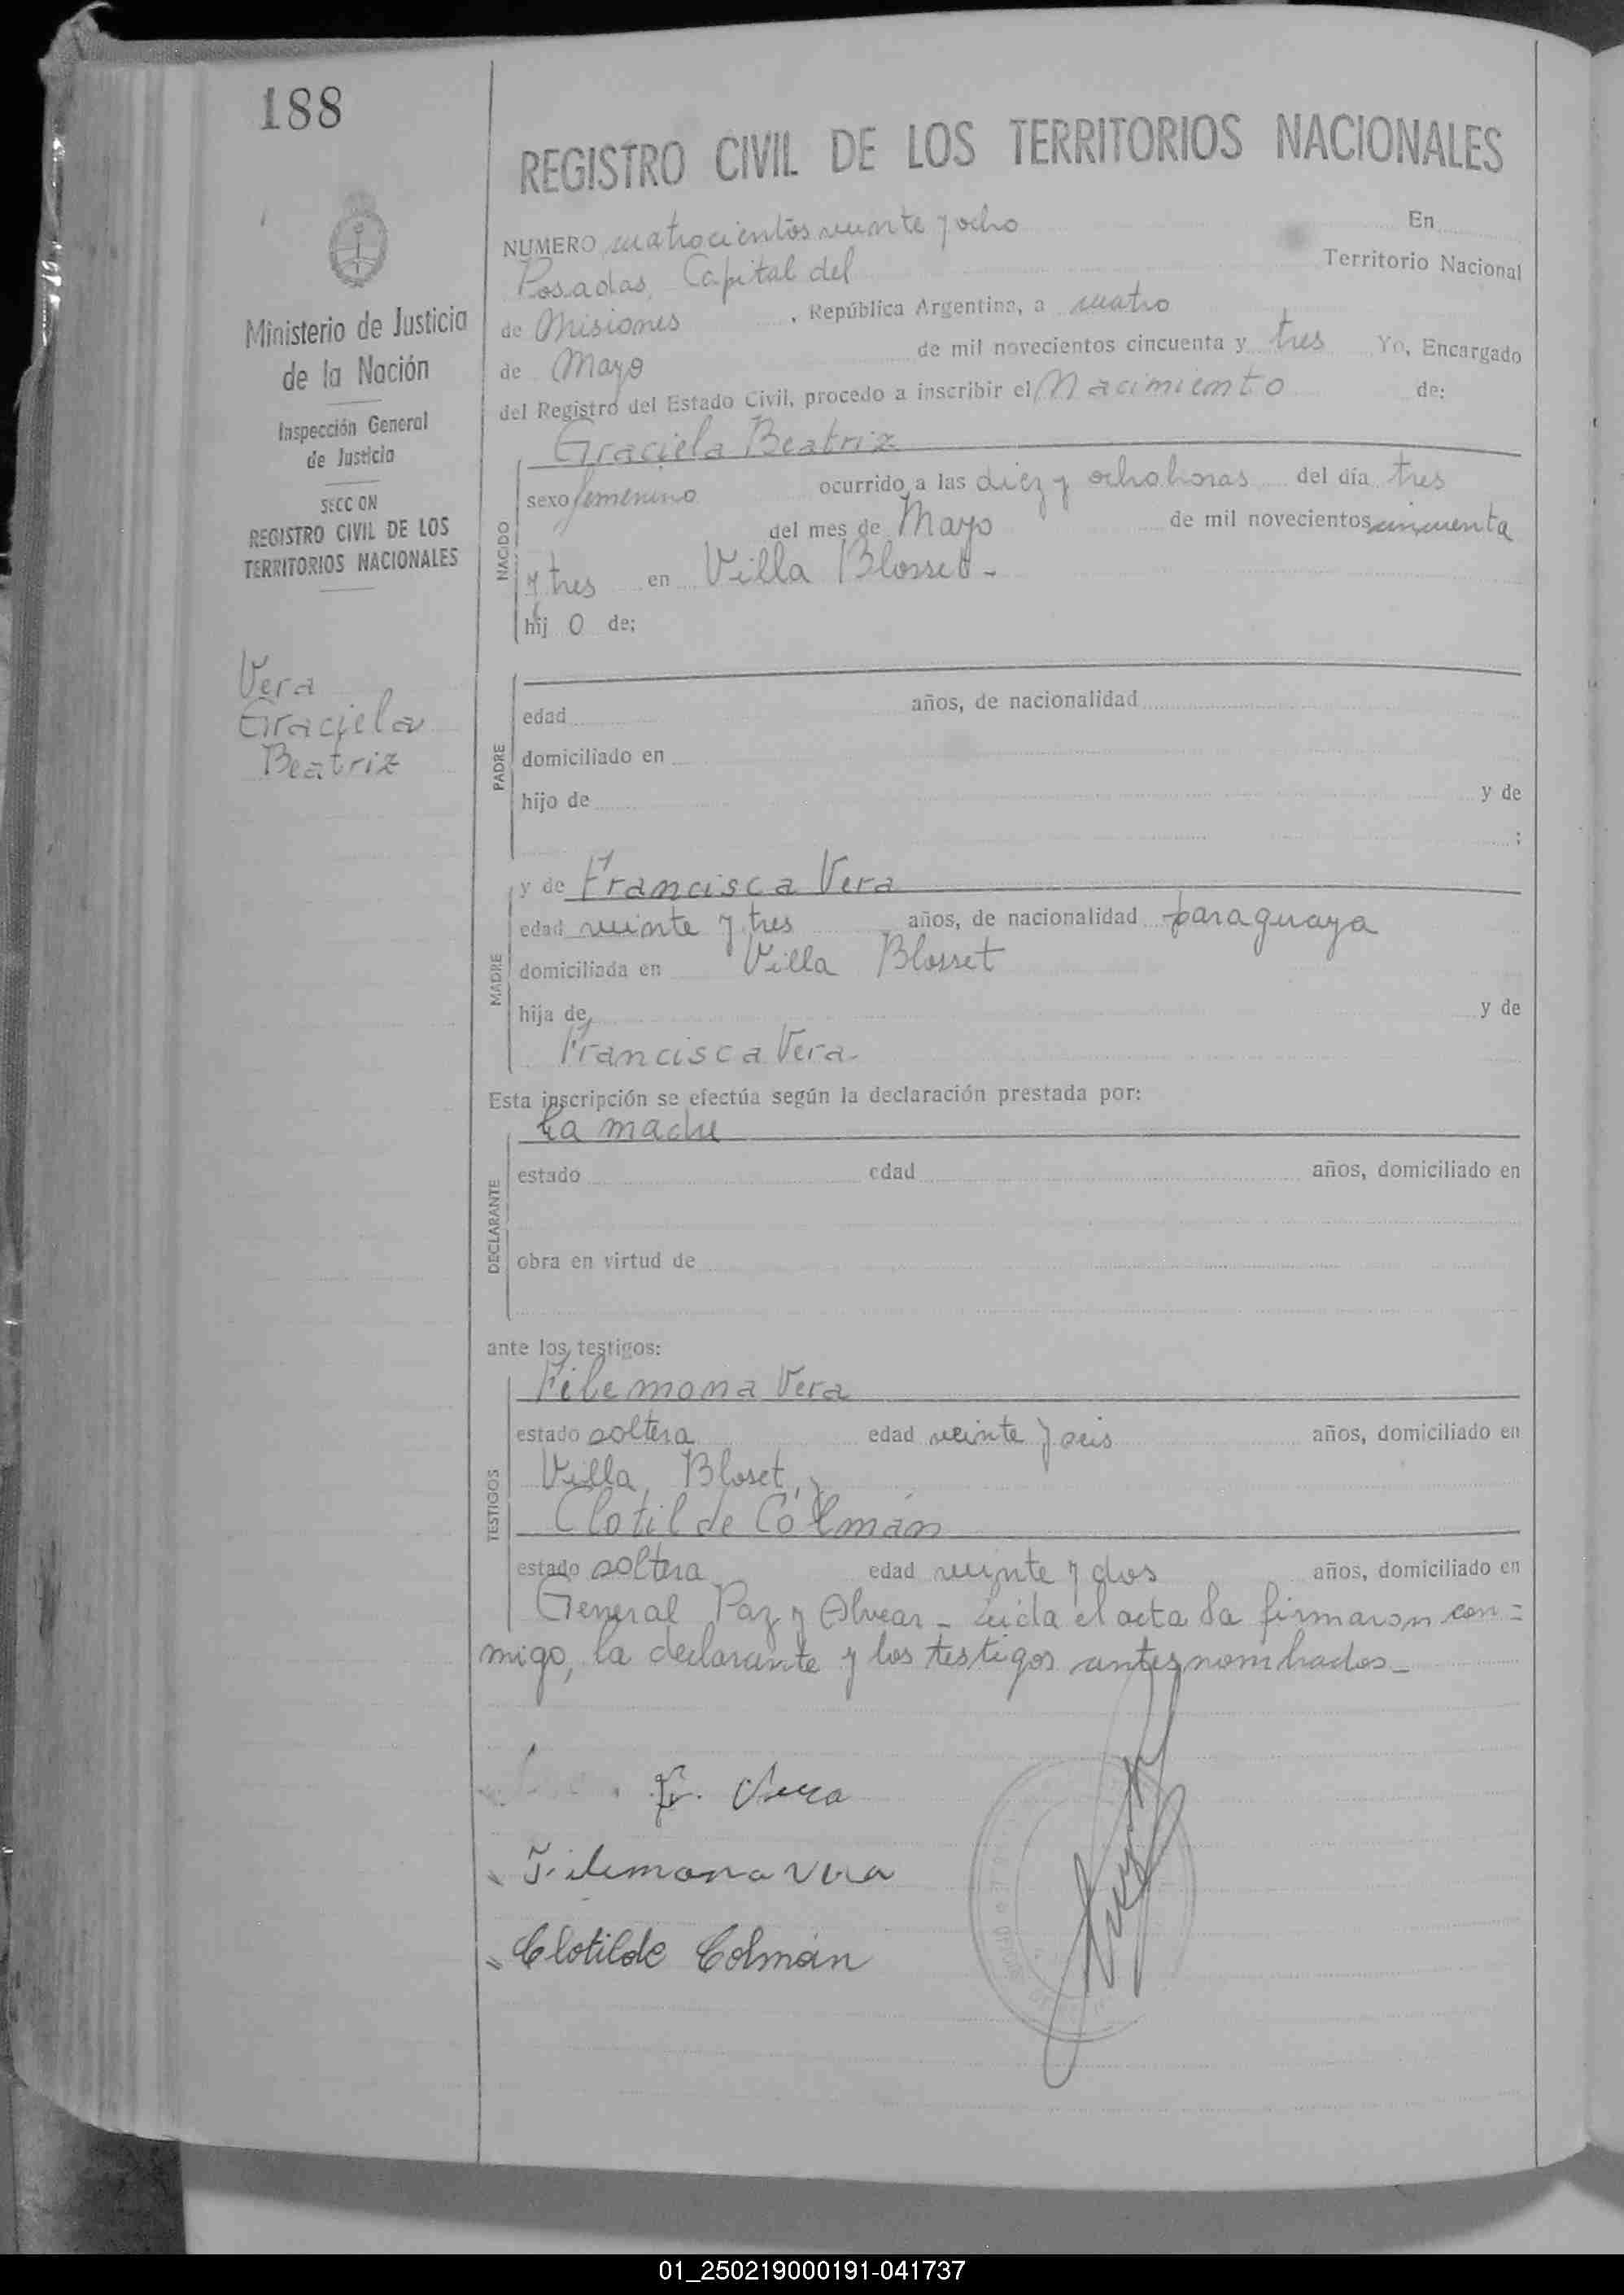 188
REGISTRO CIVIL DE LOS TERRITORIOS NACIONALES
Ministerio de Justicia
de la Nación
Inspección General
de Justicia
SECCION
REGISTRO CIVIL DE LOS
TERRITORIOS NACIONALES
Vera
Graciela
Beatriz
NUMERO cuatrocientos veinte y ocho En
Posadas, Capital del Territorio Nacional
de Misiones, República Argentina, a cuatro
de Mayo de mil novecientos cincuenta y tres Yo, Encargado
del Registro del Estado Civil, procedo a inscribir el Nacimiento de:
Graciela Beatriz
NACIDO
sexo femenino ocurrido a las diez y ocho horas del día tres
del mes de Mayo de mil novecientos cincuenta
y tres en Villa Blosset-
hij o de:
PADRE
edad años, de nacionalidad
domiciliado en
hijo de y de
;
MADRE
y de Francisca Vera
edad veinte y tres años, de nacionalidad paraguaya
domiciliada en Villa Blosset
hija de y de
Francisca Vera-
Esta inscripción se efectúa según la declaración prestada por:
DECLARANTE
La madre
estado edad años, domiciliado en
obra en virtud de
ante los testigos:
TESTIGOS
Filemona Vera
estado soltera edad veinte y seis años, domiciliado en
Villa Bloset, y
Clotilde Colmán
estado soltera edad veinte y dos años, domiciliado en
General Paz y Alvear - Leida el acta la firmaron con=
migo, la declarante y los testigos antes nombrados-
F. Vera
Filemona Vera
Clotilde Colmán
01_250219000191-041737